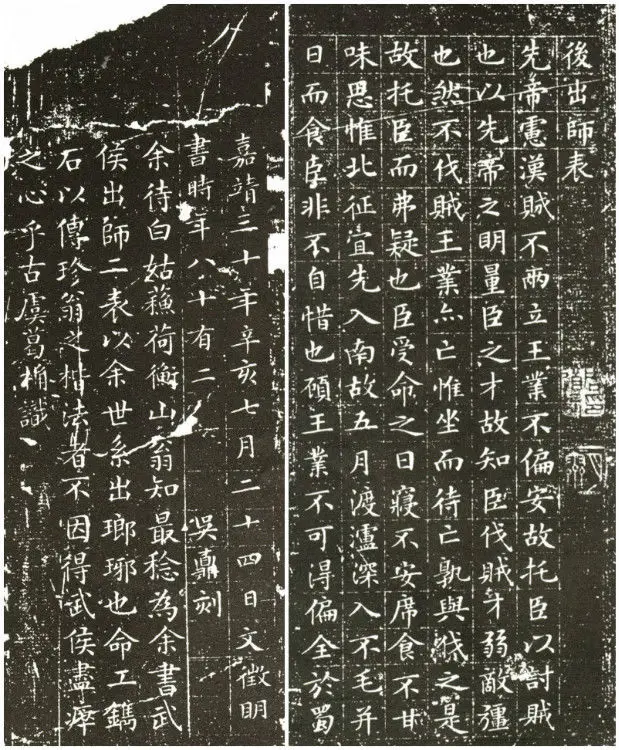 後出師表
先帝慮漢賊不兩立王業不偏安故托臣以討賊
也以先帝之明量臣之才故知臣伐賊才弱敵彊
也然不伐賊王業亦亡惟坐而待亡孰與伐之是
故托臣而弗疑也臣受命之日寢不安席食不甘
味思惟北征宜先入南故五月渡瀘深入不毛并
日而食臣非不自惜也顧王業不可得偏全於蜀
嘉靖三十年辛亥七月二十四日文徵明
書時年八十有二 吳鼒刻
余待白姑蘓荷衡山翁知最稔為余書武
侯出師二表以余世系出瑯琊也命工鐫
石以傳珍翁之楷法者不因得武侯盡瘁
之心乎古虞葛桷識